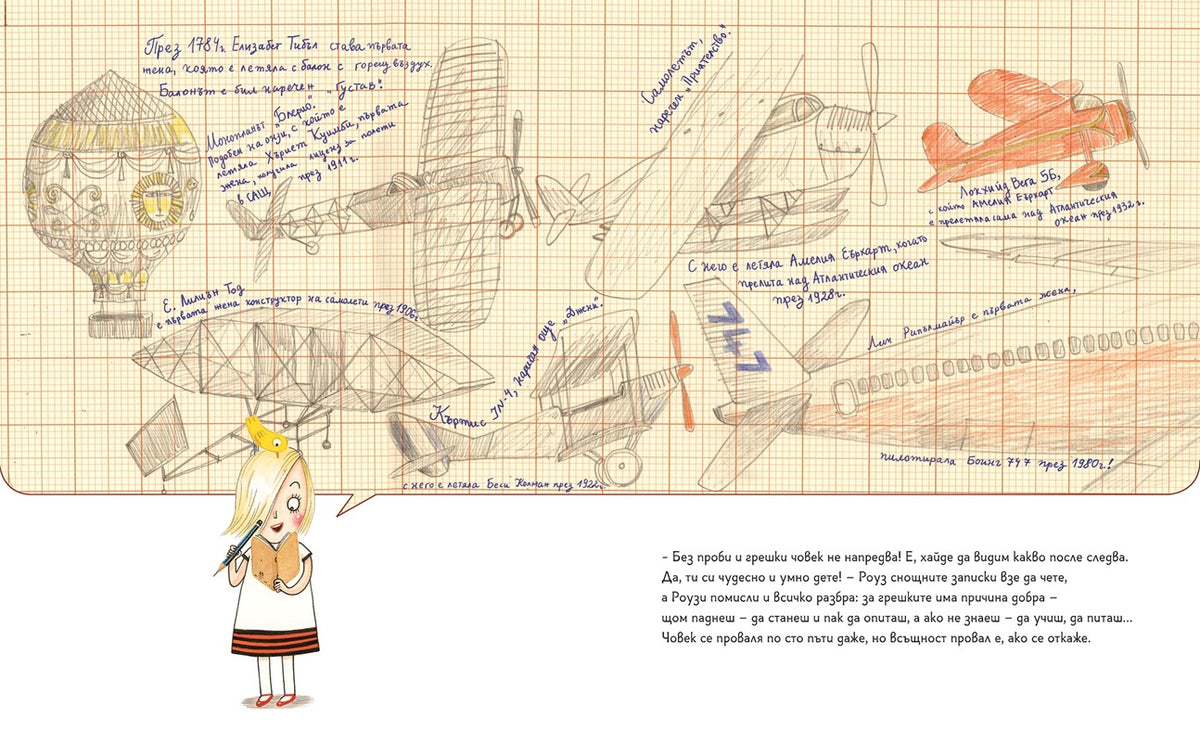 През 1784г. Елизабет Тибъл става първата
жена, която е летяла с балон с горещ въздух.
Балонът е бил наречен „Густав".
Монопланът „Блерио".
Подобен на онзи, с който е
летяла Хариет Куимби, първата
жена, получила лиценз за полети
в САЩ, през 1911г.
Самолетът,
наречен „Приятелство."
С него е летяла Амелия Еърхарт, когато
прелита над Атлантическия океан
през 1928г.
Локхийд Вега 5Б,
с който Амелия Еърхарт
е прелетяла сама над Атлантическия
океан през 1932г.
Е. Лилиън Тод
е първата жена конструктор на самолети през 1906г.
Къртис JN-4, наричан още „Джени".
с него е летяла Беси Колман през 1922г.
747
Лин Рипълмайър е първата жена,
пилотирала Боинг 747 през 1980г!
- Без проби и грешки човек не напредва! Е, хайде да видим какво после следва.
Да, ти си чудесно и умно дете! – Роуз снощните записки взе да чете,
а Роузи помисли и всичко разбра: за грешките има причина добра –
щом паднеш – да станеш и пак да опиташ, а ако не знаеш – да учиш, да питаш...
Човек се проваля по сто пъти даже, но всъщност провал е, ако се откаже.